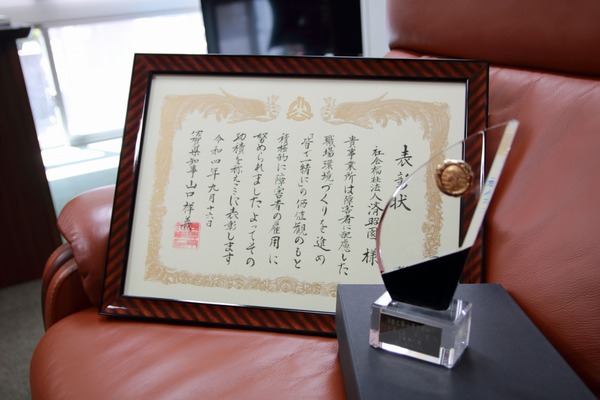 表彰状
社会福祉法人済昭園 様
貴事業所は障害者に配慮した
職場環境づくりを進め
「皆で一緒に」の価値観のもと
積極的に障害者の雇用に
努められました よってその
功績を称えここに表彰します
令和四年九月十六日
佐賀県知事 山口祥義